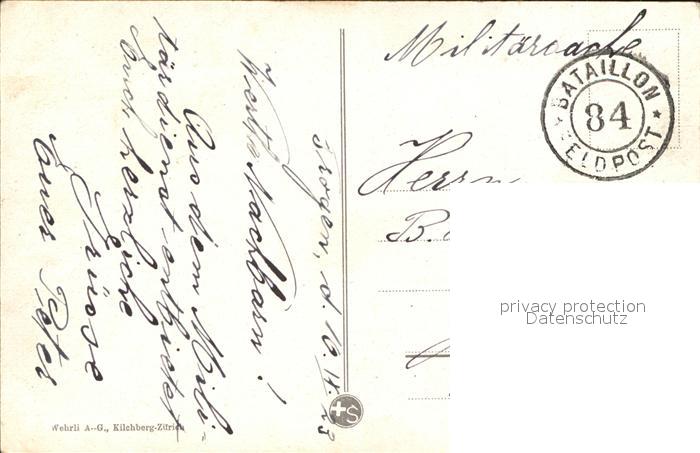 Militärsache
BATAILLON
84
FELDPOST
Trogen, d. 10. IX. 23
Werte Nachbarn!
Aus dem Mili-
tärdienst entbietet
Euch herzliche
Grüsse
Euer Peter
Herrn
B.
privacy protection
Datenschutz
Wehrli A.-G., Kilchberg-Zürich
+S